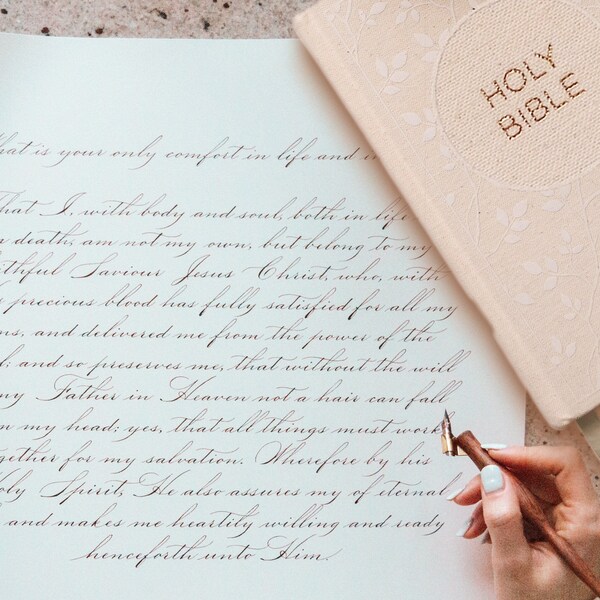 hat is your only comfort in life and in
HOLY
BIBLE
hat I, with body and soul, both in life
death, am not my own, but belong to my
ithful Saviour Jesus Christ, who, with
precious blood has fully satisfied for all my
ns, and delivered me from the power of the
l; and so preserves me, that without the will
my Father in Heaven not a hair can fall
m my head: yes, that all things must work
gether for my salvation. Wherefore by his
oly Spirit, He also assures my of eternal
and makes me heartily willing and ready
henceforth unto Him.